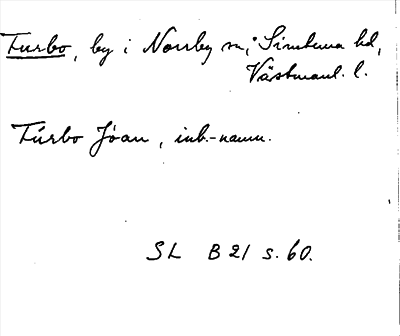 Turbo, by i Norrby sn, Simtuna hd,
Västmanl. l.
Túrbo Jóan, inb.-namn.
SL B 21 s. 60.